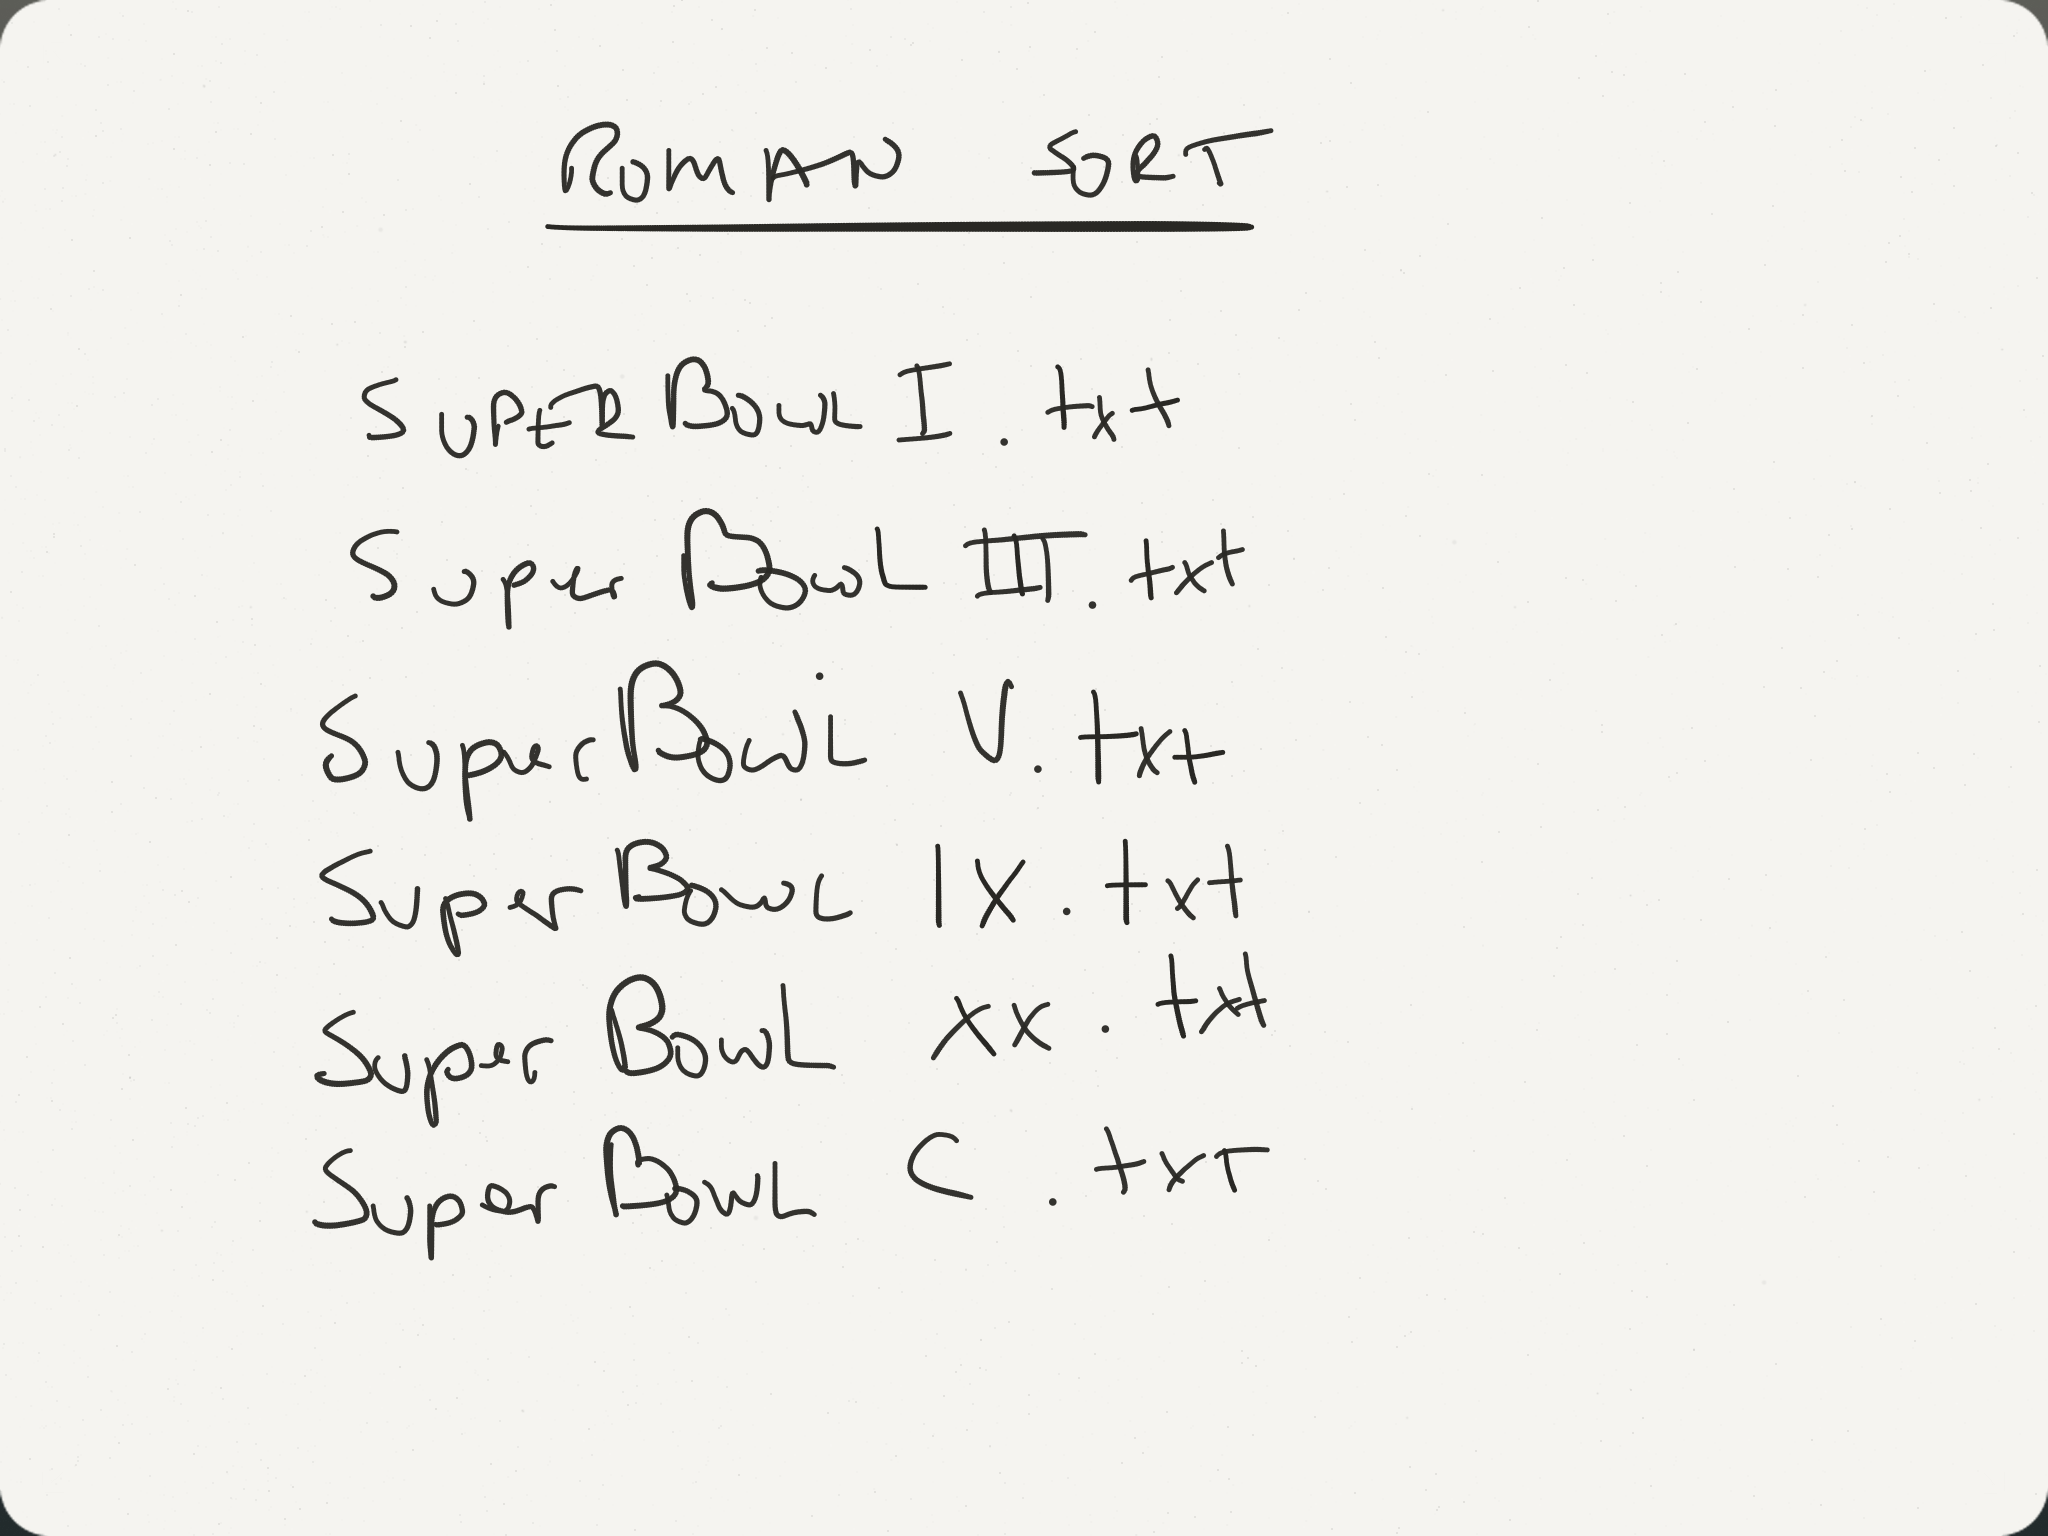 ROMAN SORT
SUPER BOWL I. txt
Super BowL III. txt
Super BowL V. txt
Super BowL IX. txt
Super BowL XX. txt
Super BowL C. txt